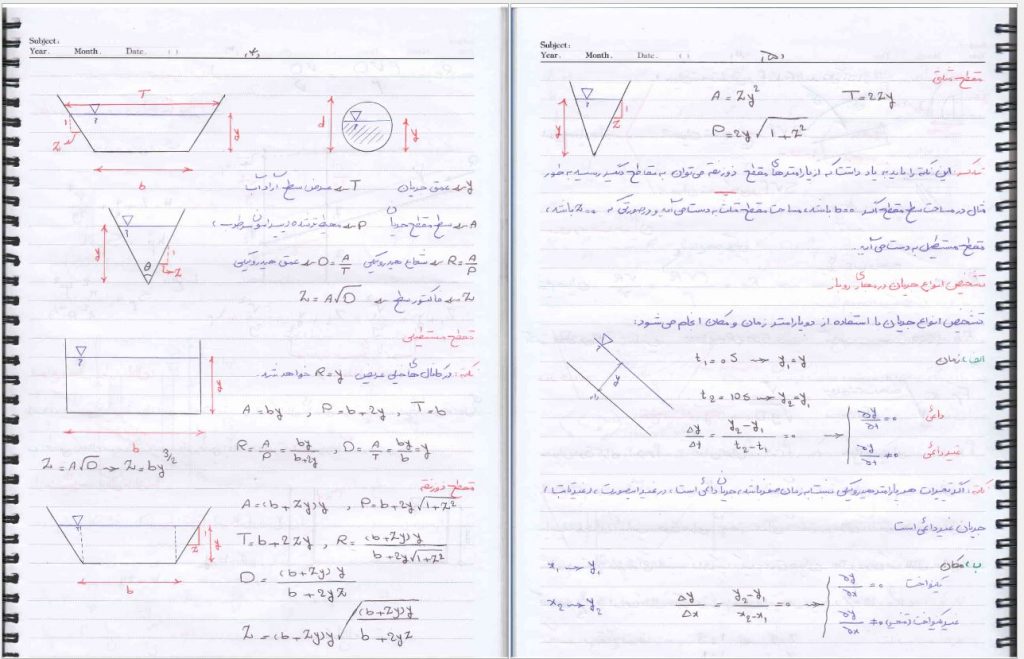 Subject:
Year. Month. Date. ( )
«۴»
T
y
z
1
b
d
y
y → عمق جریان T → عرض سطح آزاد آب
A → سطح مقطع جریان P → محیط تر شده
R = A/P → شعاع هیدرولیکی D = A/T → عمق هیدرولیکی
Z = A√D → فاکتور سطح
y
θ
1
z
مقطع مستطیلی
نکته: در کانال های خیلی عریض R = y خواهد شد.
A = by , P = b + 2y , T = b
R = A/P = by/(b+2y) , D = A/T = by/b = y
y
b
Z = A√D → Z = by^3/2
مقطع ذوزنقه
A = (b + Zy)y , P = b + 2y√(1+Z²)
T = b + 2Zy , R = (b+Zy)y / (b + 2y√(1+Z²))
D = (b+Zy)y / (b + 2yZ)
Z = (b+Zy)y √((b+Zy)y / (b + 2yZ))
1
z
y
b
Subject:
Year. Month. Date. ( )
«۵»
مقطع مثلثی
A = Zy² T = 2Zy
P = 2y√(1+Z²)
y
1
z
تذکر: این نکته را باید به یاد داشت که از پارامترهای مقطع ذوزنقه می‌توان به مقاطع دیگر رسید به طور
مثال در مساحت سطح مقطع اگر b=0 باشد، مساحت مقطع مثلث به دست می‌آید و در صورتی که Z=0 باشد،
مقطع مستطیل به دست می‌آید.
تشخیص انواع جریان در مجاری روباز
تشخیص انواع جریان با استفاده از دو پارامتر زمان و مکان اعلام می‌شود:
الف) زمان
t₁ = 0 s → y₁ = y
t₂ = 10 s → y₂ = y₁
Δy/Δt = (y₂-y₁)/(t₂-t₁) = 0 →
دائمی ∂y/∂t = 0
غیر دائمی ∂y/∂t ≠ 0
نکته: اگر تغییرات هر پارامتر هیدرولیکی نسبت به زمان صفر باشد، جریان دائمی است، در غیر اینصورت، (غیر ثابت)
جریان غیر دائمی است
ب) مکان
x₁ → y₁
x₂ → y₂
Δy/Δx = (y₂-y₁)/(x₂-x₁) = 0 →
یکنواخت ∂y/∂x = 0
غیر یکنواخت (متغیر) ∂y/∂x ≠ 0